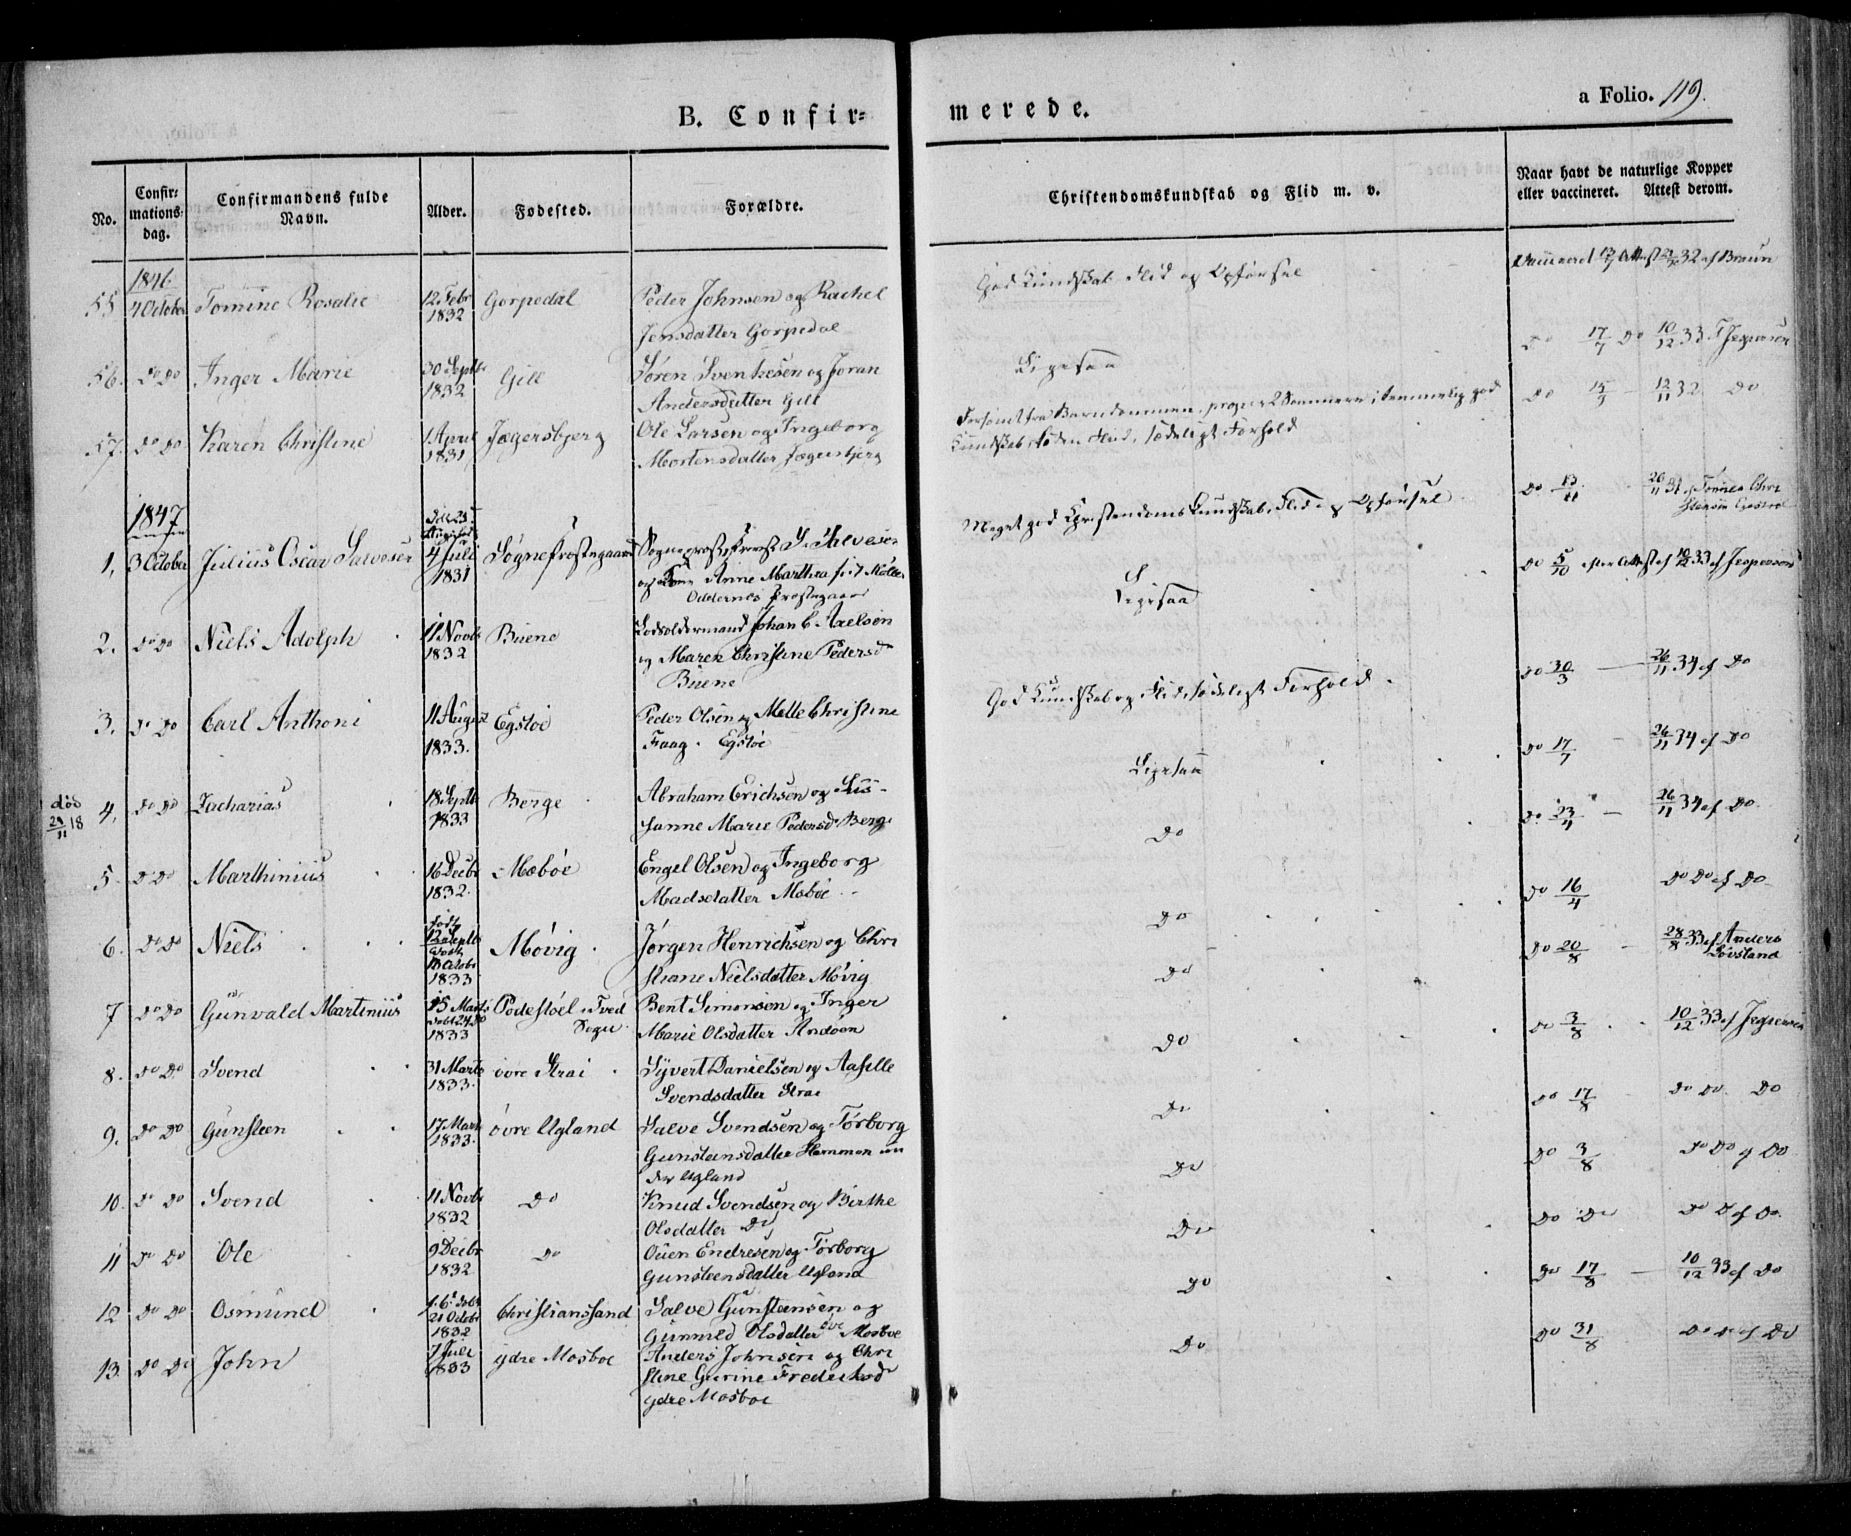 B. Confir=
merede.
a Folio. 119.
No.
Confir:
mations:
dag.
Confirmandens fulde
Navn.
Alder.
Fødested.
Forældre.
Christendomskundskab og Flid m. v.
Naar havt de naturlige Kopper
eller vaccineret. Attest derom.
1846
55 4 October Tomine Rosalie 12 Febr 1832 Gorpedal Peder Johnsen og Rachel
Jensdatter Gorpedal
God Kundskab Flid og Opførsel
32 af Braun
56. do do Inger Marie 30 Septbr 1832 Gill Søren Svenkesen og Joran
Andersdatter Gill
Ligesaa
Do 17/7 Do 10/12 33 Jespersen
57. do do Karen Christine 1 April 1831 Jægersbjerg Ole Larsen og Ingeborg
Mortensdatter Jægersbjerg
god
Kundskab Flid, sædeligt Forhold
Do 12/11 32 Do
1847
1, 3 October Julius Oscar 4 Juli 1831 Sognepræstegaard
og Anne Marthea Møller
Oddernes Præstegaard
Meget god Christendoms Kundskab, Flid og Opførsel
Do 26/11
2. do do Niels Adolph 11 Novbr 1832 Buene Lodsoldermand Johan C. Axelsen
og Maren Christine Pedersd
Buene
Ligesaa
Do 5/10 efter Attest af 10/12 33 af Jespersen
3. do do Carl Anthoni 11 August 1833. Egstøe Peder Olsen og Mette Christine
Faag. Egstøe
God Kundskab og Flid, sædeligt Forhold.
Do 30/3 26/11 34 af Do
død
29/11 18
4, do do Zacharias 18 Septbr 1833 Berge Abraham Erichsen og Sus-
sanne Marie Pedersd Berge
Ligesaa
Do 17/7 26/11 34 af Do
5. do do Marthinius 16 Decbr 1832. Mæbøe Engel Olsen og Ingeborg
Madsdatter Mæbøe
Do
Do 23/4 26/11 34 af Do
6. do do Niels født 12 Septbr døbt 13 Octobr 1833 Møvig Jørgen Henrichsen og Chri
stiane Nielsdatter Møvig
Do
Do 16/4 Do Do af Do
7 do do Gunvald Martinius 15 Marts døbt 24 Do 1833 Podestöel i Tved
Sogn.
Bent Simonsen og Inger
Marie Olsdatter Andøen
Do
Do 20/8 28/8 33 af Anders
Løvsland
8. do do Svend 31 Marts 1833. øvre Strai Syvert Danielsen og Aaselle
Svendsdatter Strai
Do
Do 3/8 10/12 33 af Jespersen
9. do do Gunsteen 17 Marts 1833. øvre Ugland Salve Svendsen og Tørborg
Gunsteensdatter
Ugland
Do
Do 17/8 Do Do Do
10. do do Svend 11 Novbr 1832 Do Knud Svendsen og Birthe
Olsdatter Do
Do
Do 3/8 Do Do af Do
11 do do Ole 9 Decbr 1832 Do Ouen Endresen og Tørborg
Gunsteensdatter Ugland
Do
Do Do Do D af Do.
12 do do Osmund 21 Octobr 1832 Christianssand Salve Gunsteensen og
Gunnild Olsdatter øve Mosboe
Do
Do 17/8 10/12 33 af Do
13. do do John 7 Juli 1833 ydre Mosboe Anders Johnsen og Chri
stine Gurine Frederiksd
ydre Mosboe
Do
Do 31/8 Do Do af Do